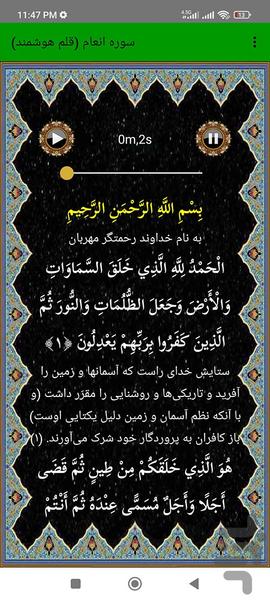 11:47 PM
4.5G
53
سوره انعام (قلم هوشمند)
0m,2s
بِسْمِ اللَّهِ الرَّحْمَنِ الرَّحِيمِ
به نام خداوند رحمتگر مهربان
الْحَمْدُ لِلَّهِ الَّذِي خَلَقَ السَّمَاوَاتِ
وَالْأَرْضَ وَجَعَلَ الظُّلُمَاتِ وَالنُّورَ ثُمَّ
الَّذِينَ كَفَرُوا بِرَبِّهِمْ يَعْدِلُونَ ﴿۱﴾
ستایش خدای راست که آسمانها و زمین را
آفرید و تاریکی‌ها و روشنایی را مقرّر داشت (و
با آنکه نظم آسمان و زمین دلیل یکتایی اوست)
باز کافران به پروردگار خود شرک می‌آورند. (۱)
هُوَ الَّذِي خَلَقَكُمْ مِنْ طِينٍ ثُمَّ قَضَى
أَجَلًا وَأَجَلٌ مُسَمًّى عِنْدَهُ ثُمَّ أَنْتُمْ